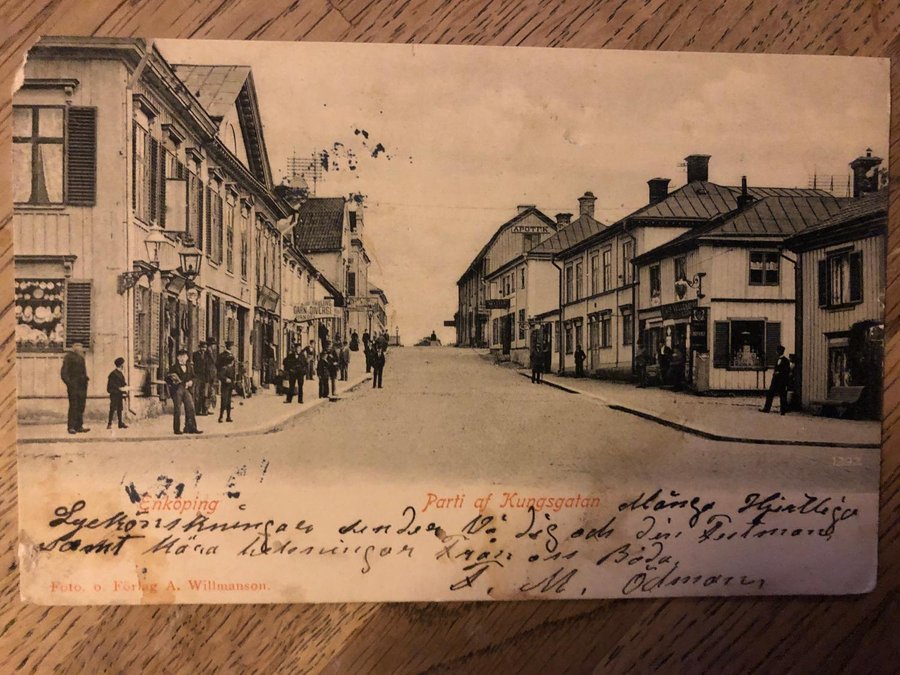 APOTEK
GARN. DIVERSE
1292
Enköping
Parti af Kungsgatan
Många Hjertliga
Lyckönskningar sender Vi dig och din Festmane
Samt Kära helsningar Från oss Båda
F. M. Ödman
Foto. o. Förlag A. Willmanson.